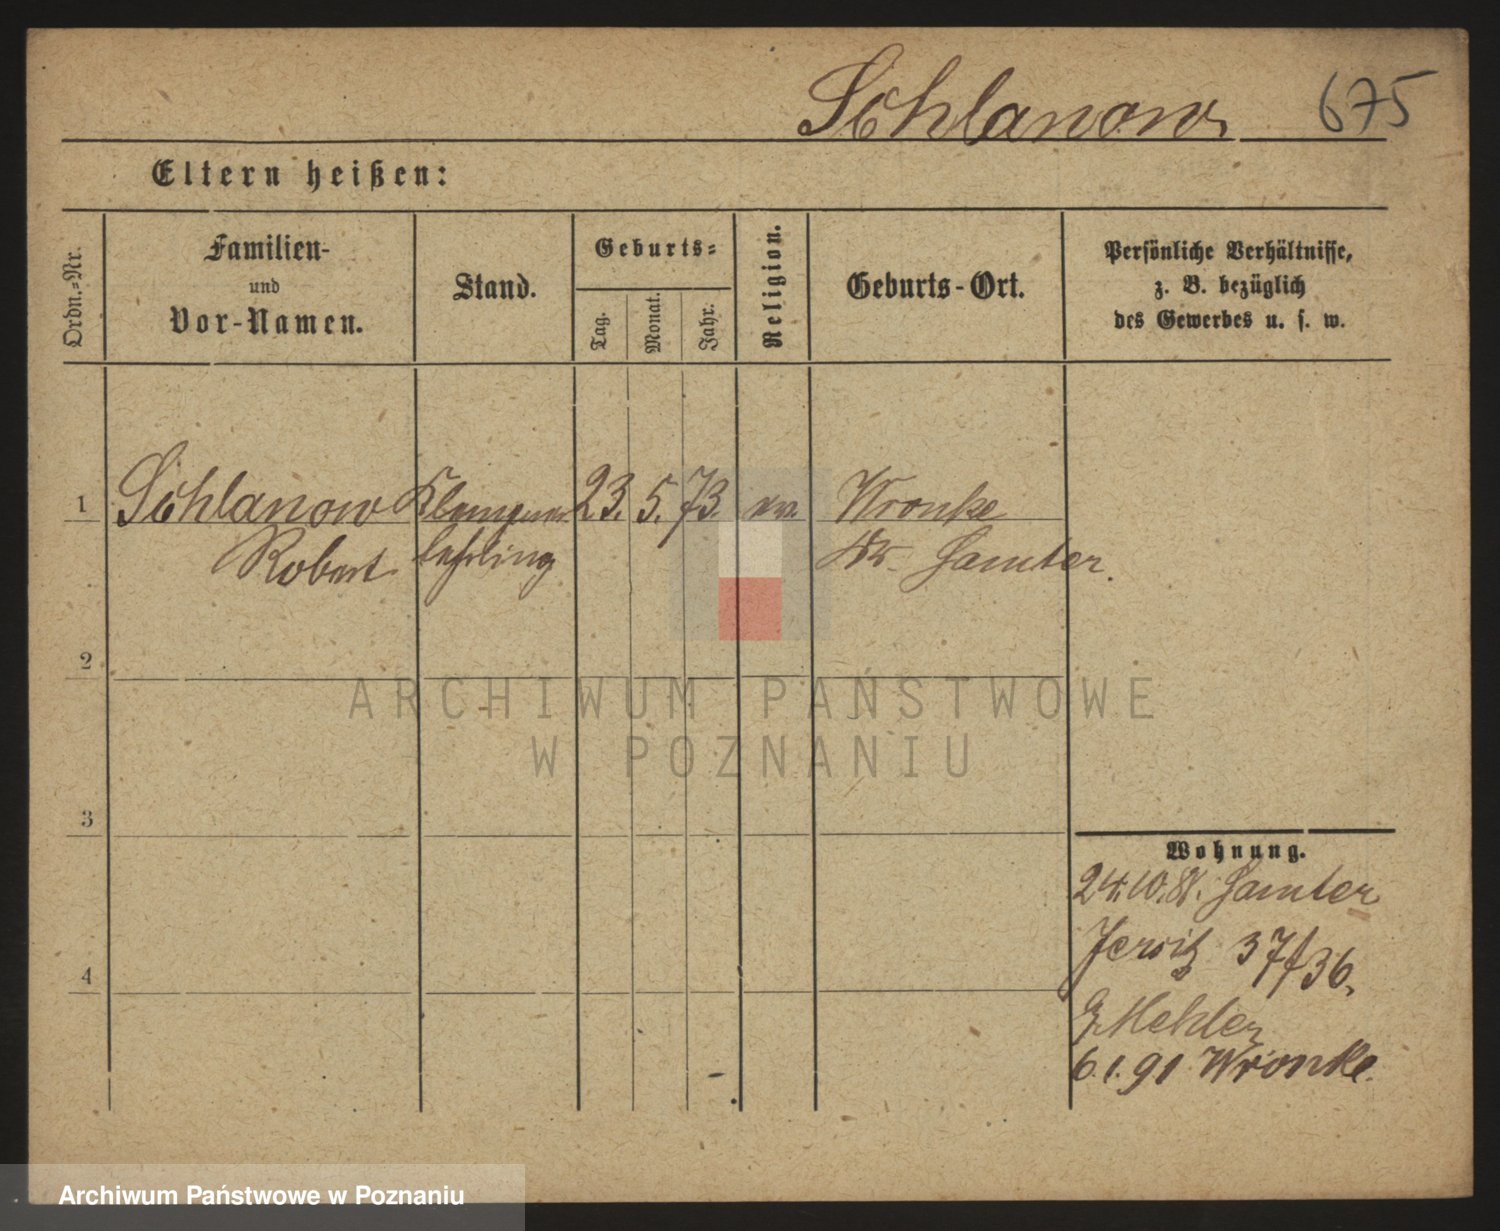 Schlanow 675
Eltern heißen:
Ordn.-Nr.
Familien-
und
Vor-Namen.
Stand.
Geburts-
Tag.
Monat.
Jahr.
Religion.
Geburts-Ort.
Persönliche Verhältnisse,
z. B. bezüglich
des Gewerbes u. s. w.
1 Schlanow Klempner 23. 5. 73. ev. Wronke
Robert lehrling Kr. Samter.
2
ARCHIWUM PAŃSTWOWE
W POZNANIU
3
Wohnung.
24.10. Samter
Jersitz 37/36.
4
Mehler
6.1.91 Wronke.
Archiwum Państwowe w Poznaniu